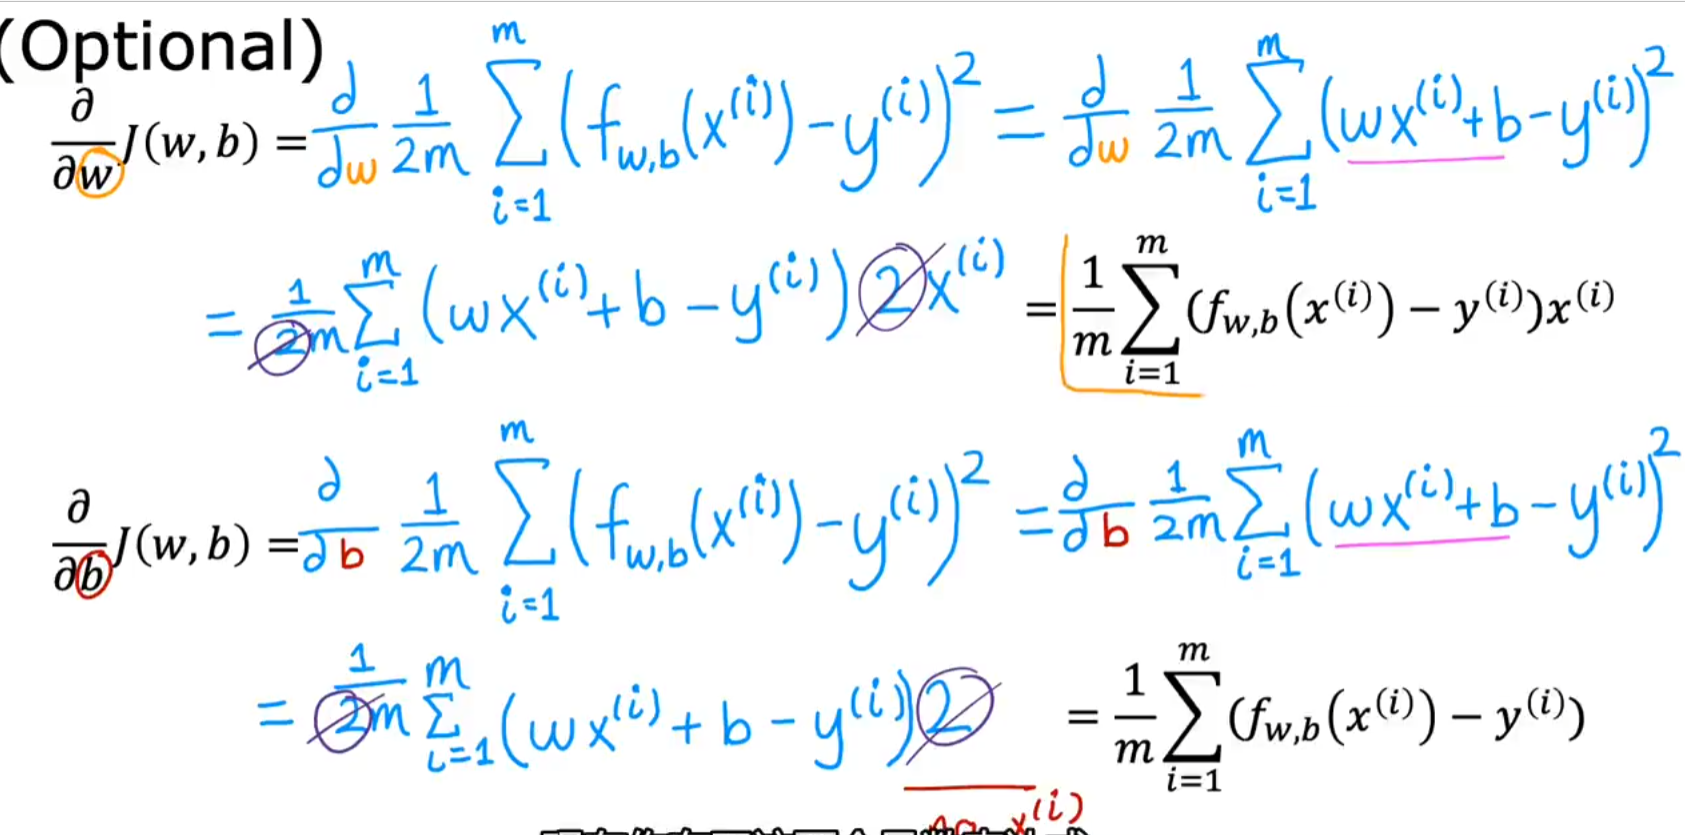 (Optional)
∂/∂w J(w, b) = d/dw 1/2m ∑_{i=1}^{m} (f_{w,b}(x^{(i)}) − y^{(i)})^2 = d/dw 1/2m ∑_{i=1}^{m} (wx^{(i)} + b − y^{(i)})^2
= 1/2m ∑_{i=1}^{m} (wx^{(i)} + b − y^{(i)}) 2x^{(i)} = 1/m ∑_{i=1}^{m} (f_{w,b}(x^{(i)}) − y^{(i)})x^{(i)}
∂/∂b J(w, b) = ∂/∂b 1/2m ∑_{i=1}^{m} (f_{w,b}(x^{(i)}) − y^{(i)})^2 = ∂/∂b 1/2m ∑_{i=1}^{m} (wx^{(i)} + b − y^{(i)})^2
= 1/2m ∑_{i=1}^{m} (wx^{(i)} + b − y^{(i)}) 2 = 1/m ∑_{i=1}^{m} (f_{w,b}(x^{(i)}) − y^{(i)})
x^{(i)}